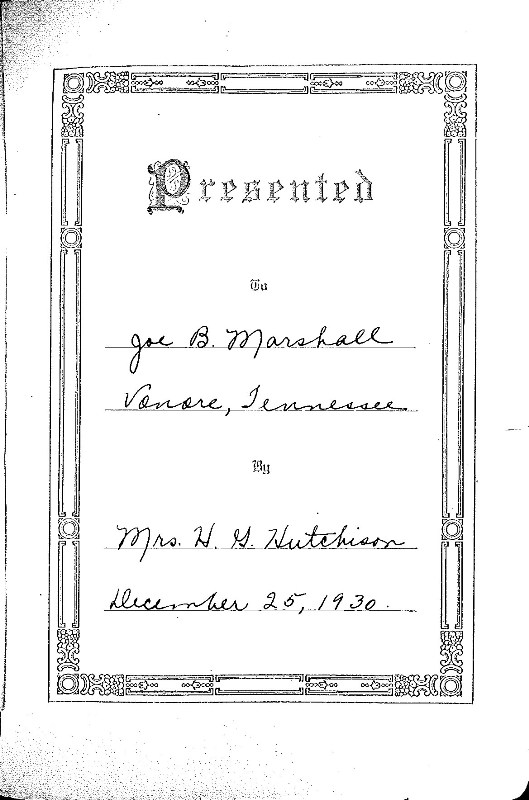 Presented
To
Joe B. Marshall
Vonore, Tennessee
By
Mrs. H. G. Hutchison
December 25, 1930.